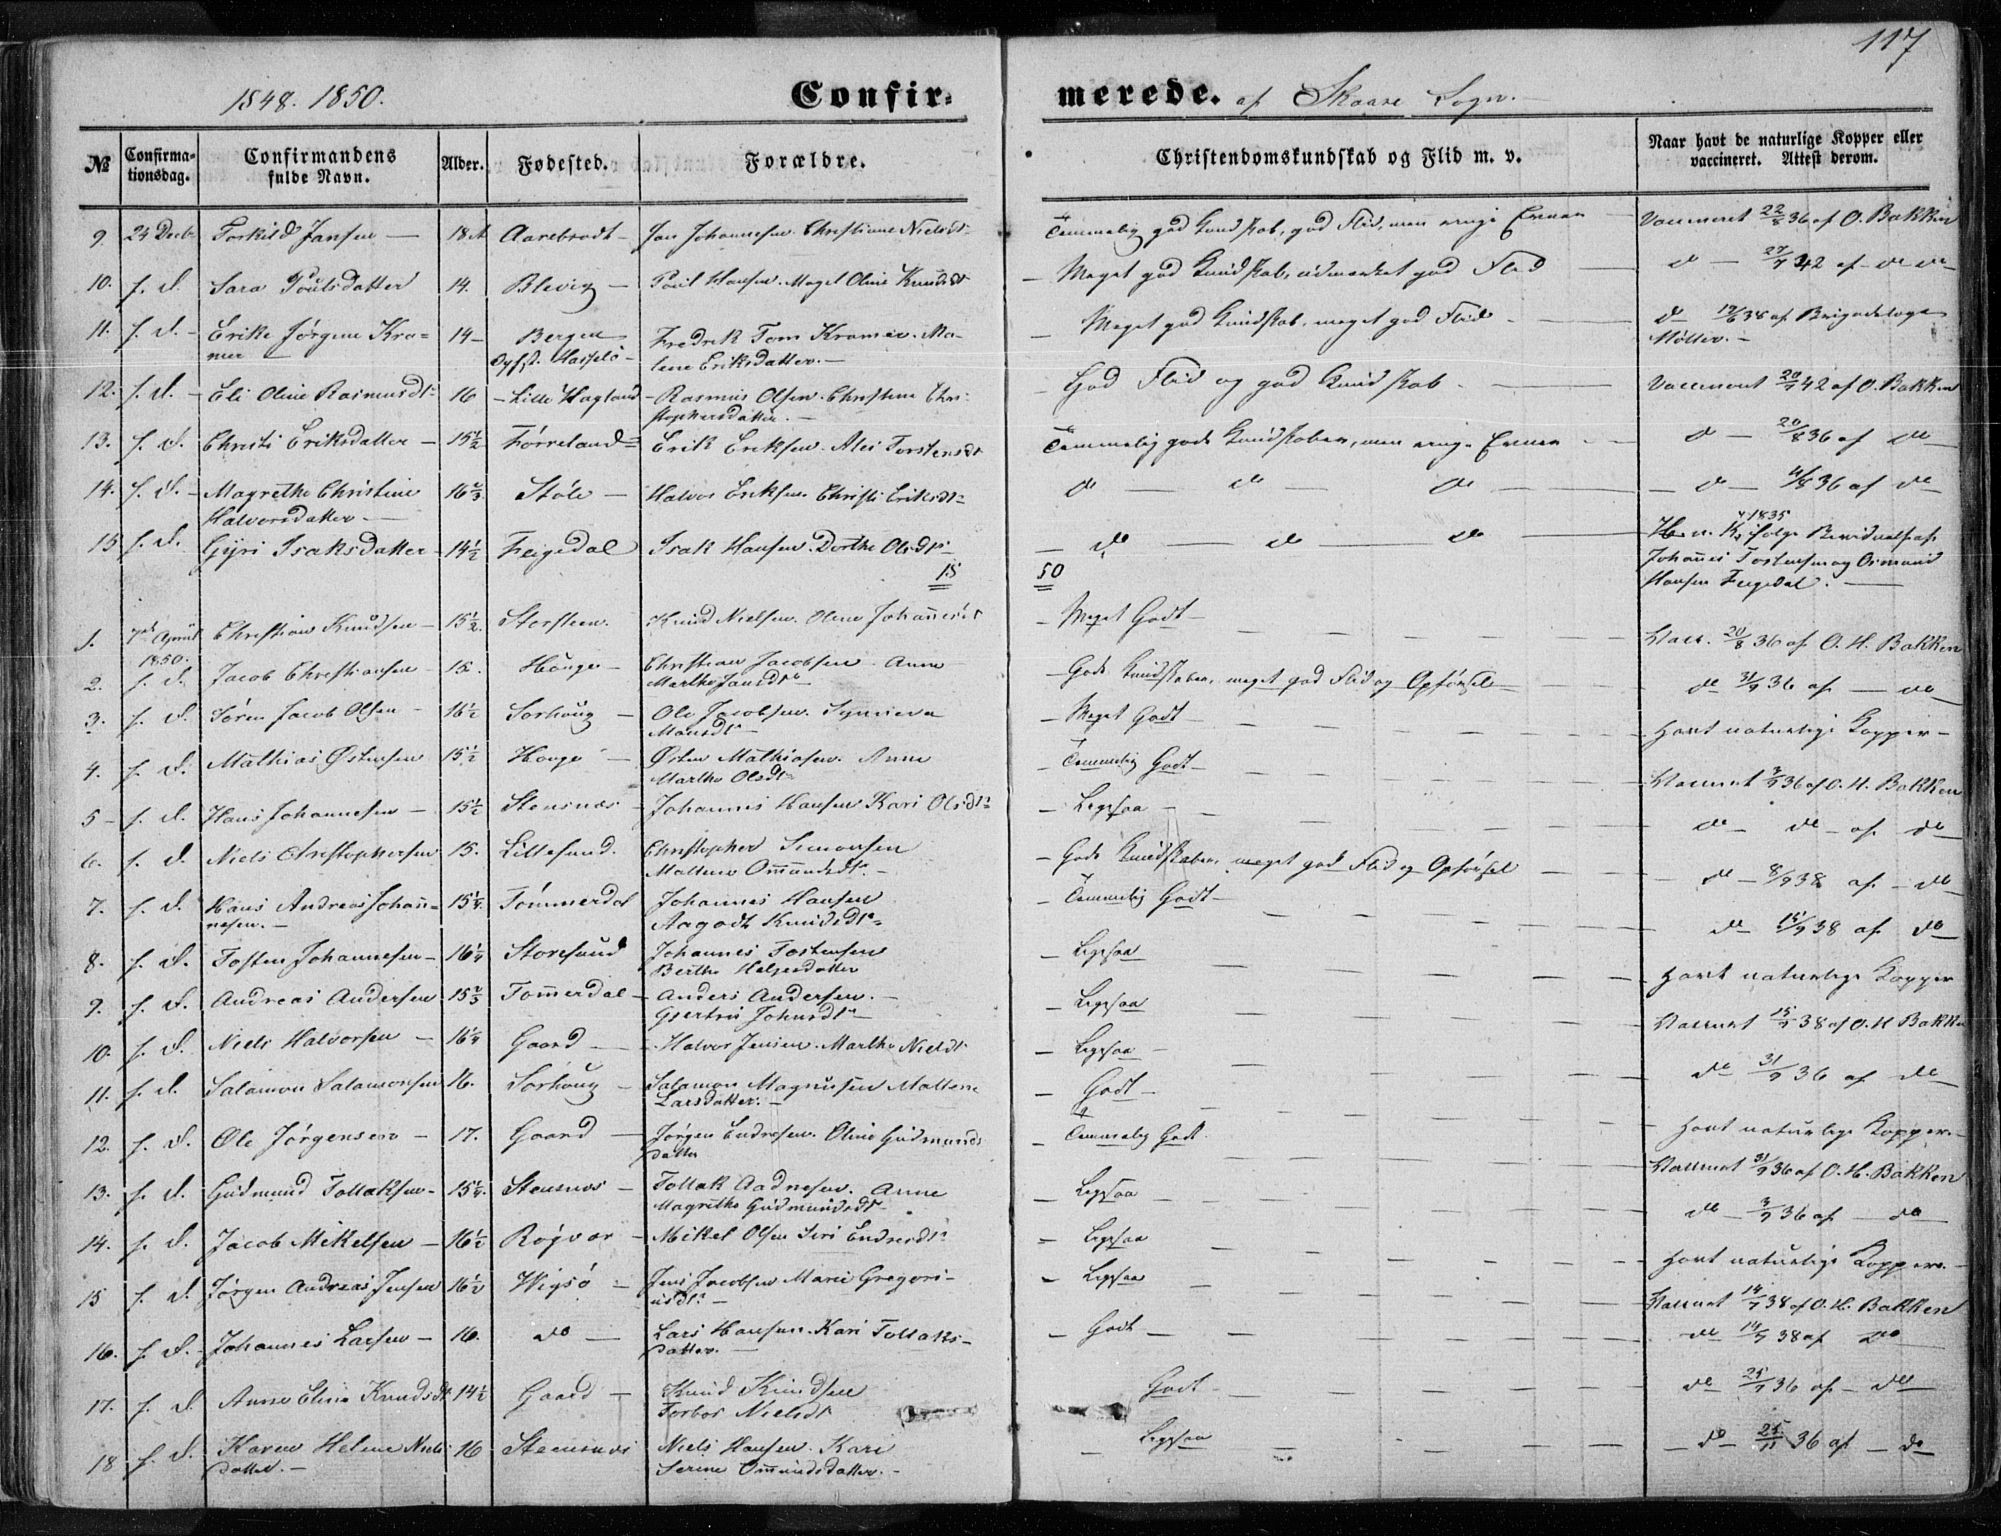 117
1848. 1850. Confir= merede. af Skaare Sogn.
№ Confirma=tionsdag. Confirmandens fulde Navn. Alder. Fødested. Forældre. Christendomskundskab og Flid m. v. Naar havt de naturlige Kopper eller vaccineret. Attest derom.
9 24 Decb Torkild Jansen — 18 Aarebrodt — Jan Johannesen. Christiane Nielsdt. Temmelig god Kundskab, god Flid, men ringe Evner Vaccineret 22/8 36 af O. Bakken
10. f. d. Sara Poulsdatter 14. Blevig — Poul Hansen. Magel Oline Knudsdt — Meget god Kundskab, udmærket god Flid d — 27/7 42 af do do
11. f. d. — Erike Jørgine Kra= 14 — Bergen Fredrik Tom Kramer. Ma= — Meget god Kundskab, meget god Flid — do 19/6 38 af Brigadelæge
mer Hasselø — lene Eriksdatter. — Møller. —
12. f. d. — Eli Oline Rasmusdt. 16 — Lille Hagland — Rasmus Olsen. Christine Chri= — God Flid og god Kundskab. Vaccineret 20/7 42 af O. Bakken
stophersdatter. —
13. f. d. Christi Eriksdatter — 15½ Førreland Erik Eriksen. Alei Torstensdt Temmelig gode Kundskaber, men ringe Evner d — 20/8 36 af do
14. f. d. — Magrethe Christine 16⅔ Støle — Halvor Eriksen. Christi Eriksdt. d — do — do — d — 4/8 36 af do
Halvorsdatter. —
15 f. d. Gyri Isaksdatter 14½ Feigedal Isak Hansen. Dorthe Olsdt. — do — do — do 1835
H. n. K. ifølge Bevidnelse af
15 50 Johannes Tostensen og Osmund
Hansen Feigedal. —
1. 7de April Christian Knudsen — 15½. Storsteen. Knud Nielsen. Oline Johannesdt — Meget Godt — Vacc. 20/8 36 af O. H. Bakken
1850.
2. f. d. Jacob Christiansen — 15. Hauge — Christian Jacobsen. Anne — Gode Kundskaber, meget god Flid og Opførsel — do 31/9 36 af — do
Marthe Jansdt. —
3. f. d. Søren Jacob Olsen — 16½ Sørhoug — Ole Jacobsen. Synneva — Meget Godt — Havt naturlige Kopper —
Monsdt. —
4. f. d. Mathias Østensen 15½ Hauge — Østen Mathiasen. Anne — Temmelig Godt — Vaccinert 3/9 36 af O. H. Bakken
Marthe Olsdt.
5 — f. d. Hans Johannesen — 15½ Stensnæs — Johannes Hansen Kari Olsdt. — Ligesaa — do — do — af do
6. f. d. Niels Christophersen 15. Lillesund. Christopher Simonsen — Gode Kundskaber, meget god Flid og Opførsel do — 8/9 38 af — do
Maltene Ommundsdt. —
7. f. d. Hans Andreas Johan= 15¼ Tømmerdal Johannes Hansen — Temmelig Godt — do 15/9 38 af do
nesen. — Aagodt Knudsdt. —
8. f. d. Tosten Johannesen — 16¼ Storesund Johannes Tostensen — Ligesaa Havt naturlige Kopper
Berthe Helgesdatter
9. f. d. Andreas Andersen 15⅔ Tommerdal — Anders Andersen. — — Ligesaa Vaccinert 15/9 38 af O. H Bakken
Gjertrui Johnsdt.
10. f. d. Niels Halvorsen — 16¼ Gaard — Halvor Jensen. Marthe Nielsdt — Ligesaa — do 31/9 36 af do
11. f. d. Salamon Salamonsen 16. Sørhoug — Salamon Magnusen Maltene — Godt — Havt naturlige Kopper. —
Larsdatter. —
12. f. d. Ole Jørgensen — 17. Gaard — Jørgen Endresen. Oline Gudmunds — Temmelig Godt. Vaccinert 31/9 36 af O. H. Bakken
datter
13. f. d. Gudmund Tollaksen — 15¼. Stensnes — Tollak Aadnesen. Anne — Ligesaa do — 3/9 36 af — do
Magrethe Gudmundsdt —
14. f. d. Jacob Mikelsen — 16½ Røgvar — Mikel Olsen Siri Endresdt. — Ligesaa Havt naturlige Kopper. —
15 f. d. Jørgen Andreas Jensen 16½ Wigsø — Jens Jacobsen Marie Gregori= — Ligesaa Vaccinet 14/9 38 af O. H. Bakken
usdt. —
16. f. d. Johannes Larsen — 16. do — Lars Hansen. Kari Tollaks= — Godt — do 14/9 38 af do
datter. —
17. f. d. Anne Elisa Knudsdt. 14½ Gaard — Knud Knudsen Godt — do 25/7 36 af — do
Torbor Nielsdt
18 f. d. Karen Helene Niels 16 Steensnæs Niels Hansen. Kari — Ligesaa — do — 25/11 36 af — do
datter. — Serine Ommundsdatter. —